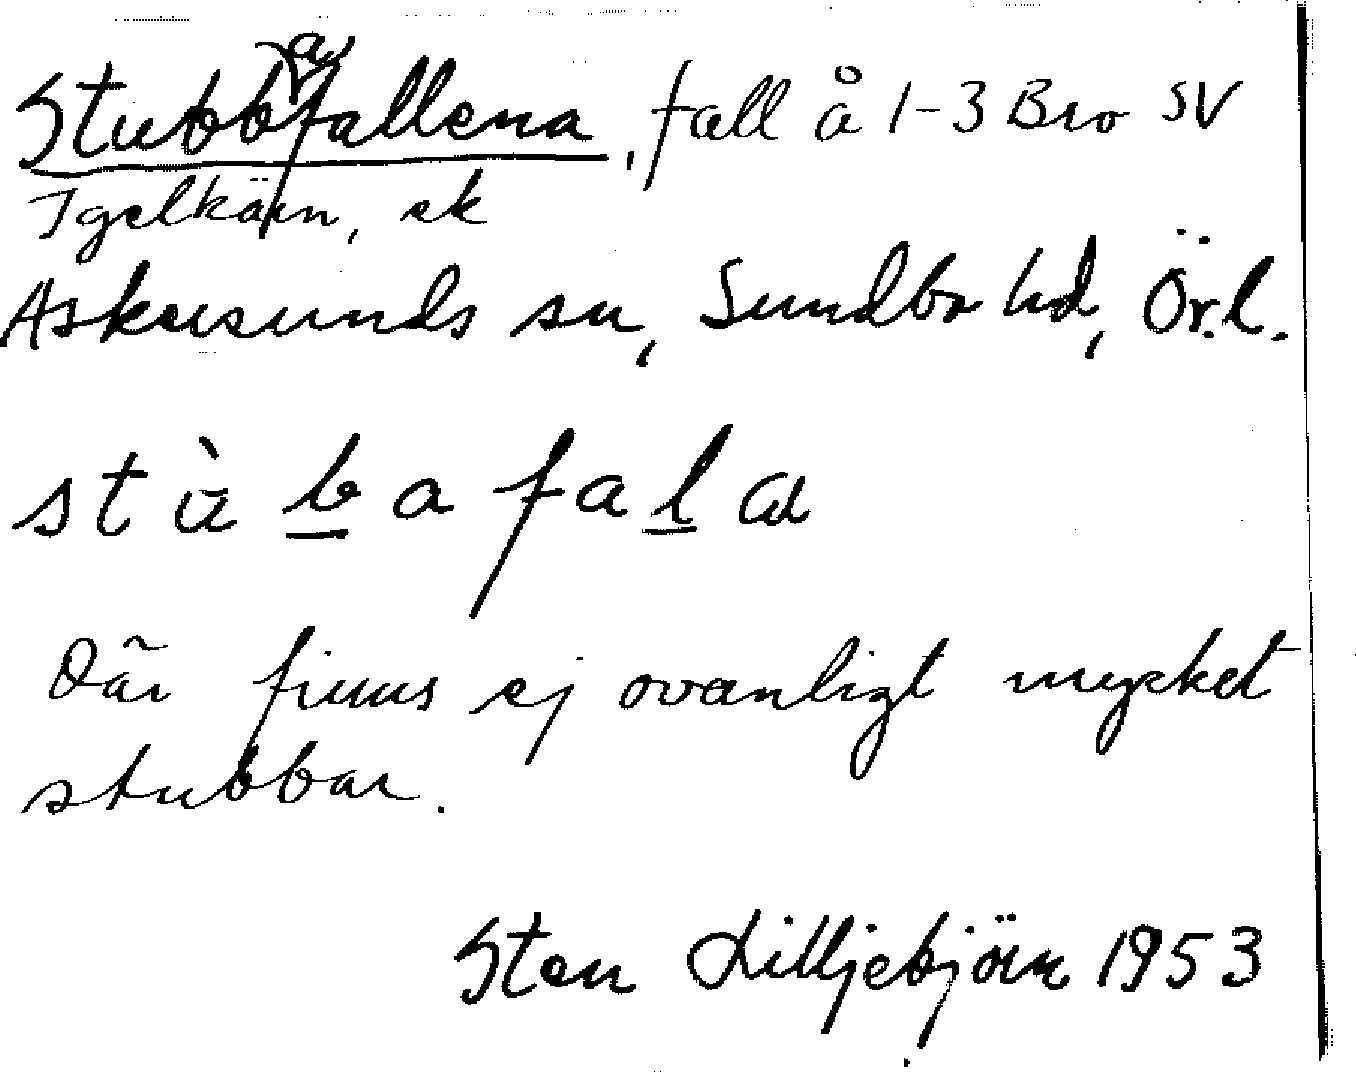 Stubb(a)fallena, fall å 1-3 Bro SV
Igelkärn, ek
Askersunds sn, Sundbo hd, Ör.l.
stùbafala
Där finns ej ovanligt mycket
stubbar.
Sten Lilljebjörn 1953